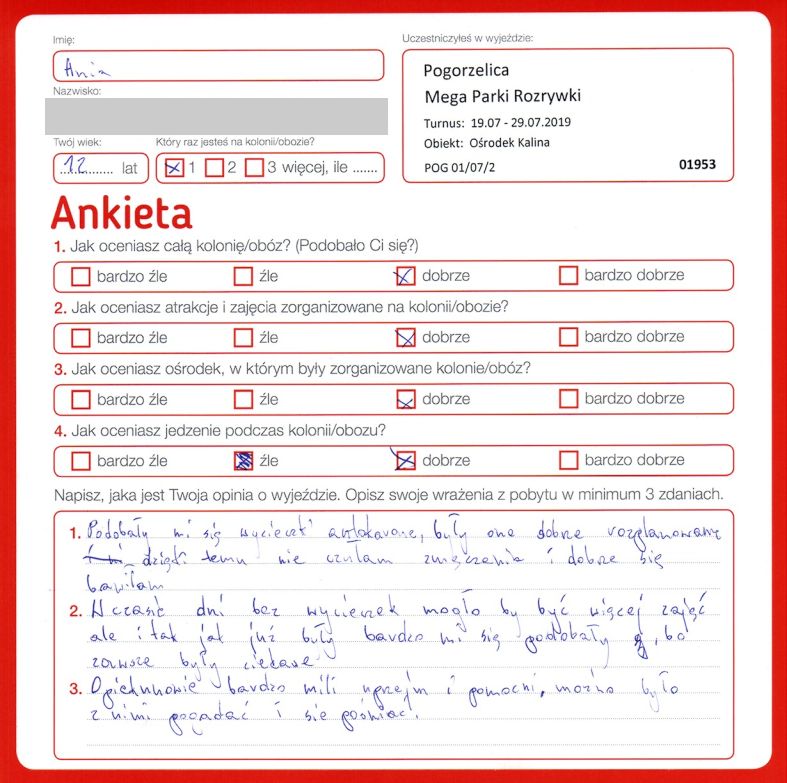 Imię:
Ania
Nazwisko:
Twój wiek:
12 lat
Który raz jesteś na kolonii/obozie?
1 2 3 więcej, ile .......
Uczestniczyłeś w wyjeździe:
Pogorzelica
Mega Parki Rozrywki
Turnus: 19.07 - 29.07.2019
Obiekt: Ośrodek Kalina
POG 01/07/2 01953
Ankieta
1. Jak oceniasz całą kolonię/obóz? (Podobało Ci się?)
bardzo źle źle dobrze bardzo dobrze
2. Jak oceniasz atrakcje i zajęcia zorganizowane na kolonii/obozie?
bardzo źle źle dobrze bardzo dobrze
3. Jak oceniasz ośrodek, w którym były zorganizowane kolonie/obóz?
bardzo źle źle dobrze bardzo dobrze
4. Jak oceniasz jedzenie podczas kolonii/obozu?
bardzo źle źle dobrze bardzo dobrze
Napisz, jaka jest Twoja opinia o wyjeździe. Opisz swoje wrażenia z pobytu w minimum 3 zdaniach.
1. Podobały mi się wycieczki autokarowe, były one dobrze rozplanowane
dzięki temu nie czułam zmęczenia i dobrze się
bawiłam
2. W czasie dni bez wycieczek mogło by być więcej zajęć
ale i tak jak już były bardzo mi się podobały, bo
zawsze były ciekawe
3. Opiekunowie bardzo mili uprzejmi i pomocni, można było
z nimi pogadać i się pośmiać.